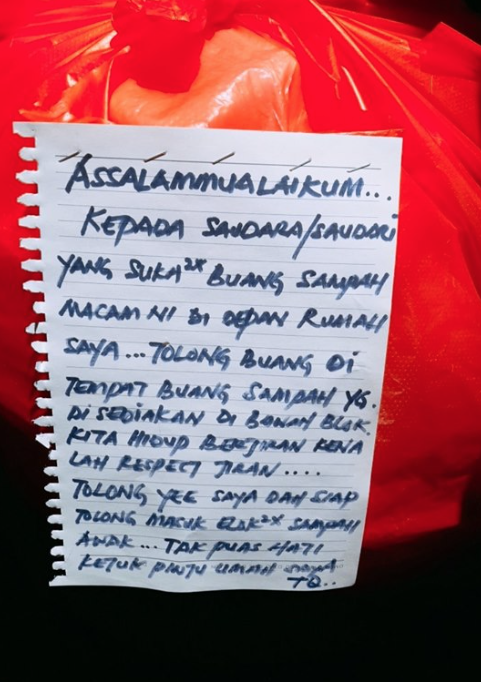 ASSALAMMUALAIKUM...
KEPADA SAUDARA/SAUDARI
YANG SUKA2X BUANG SAMPAH
MACAM NI DI DEPAN RUMAH
SAYA... TOLONG BUANG DI
TEMPAT BUANG SAMPAH YG.
DI SEDIAKAN DI BAWAH BLOK.
KITA HIDUP BERJIRAN KENA
LAH RESPECT JIRAN....
TOLONG YEE SAYA DAH SIAP
TOLONG MASUK ELOK2X SAMPAH
ANDK... TAK PUAS HATI
KETUK PINTU UMAH SAYA
TQ..